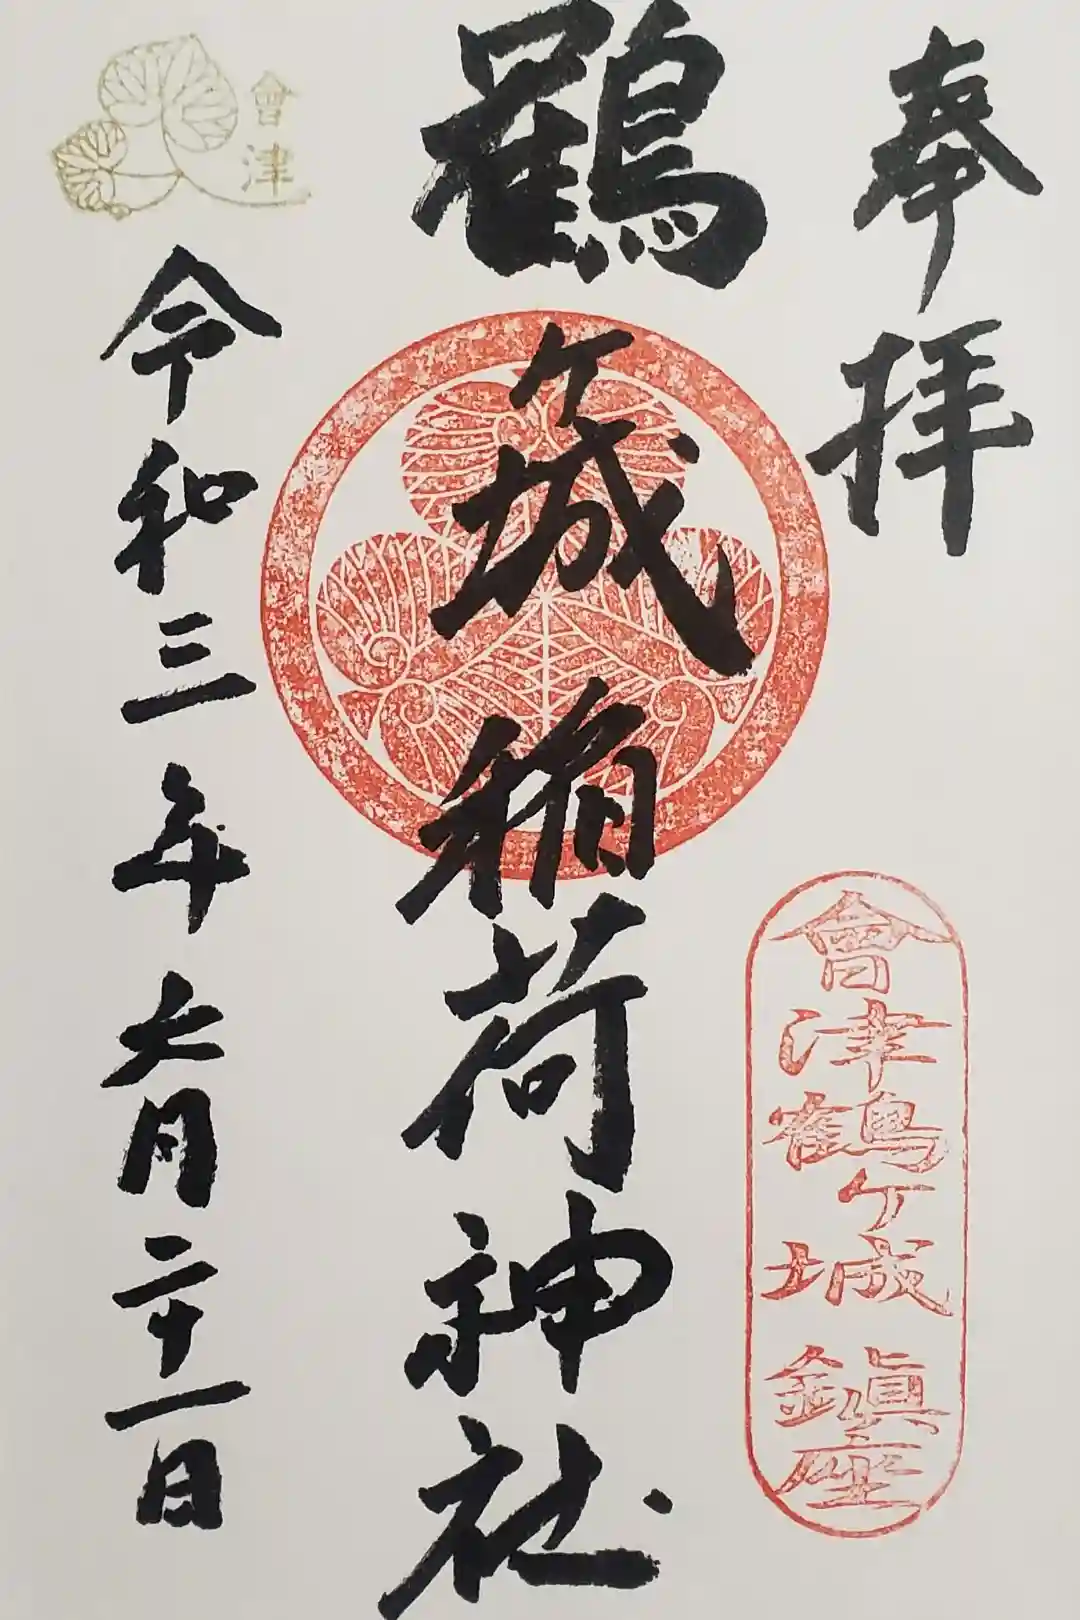 奉拝
會津鶴ケ城鎮座
鶴ケ城稲荷神社
會津
令和三年六月二十一日